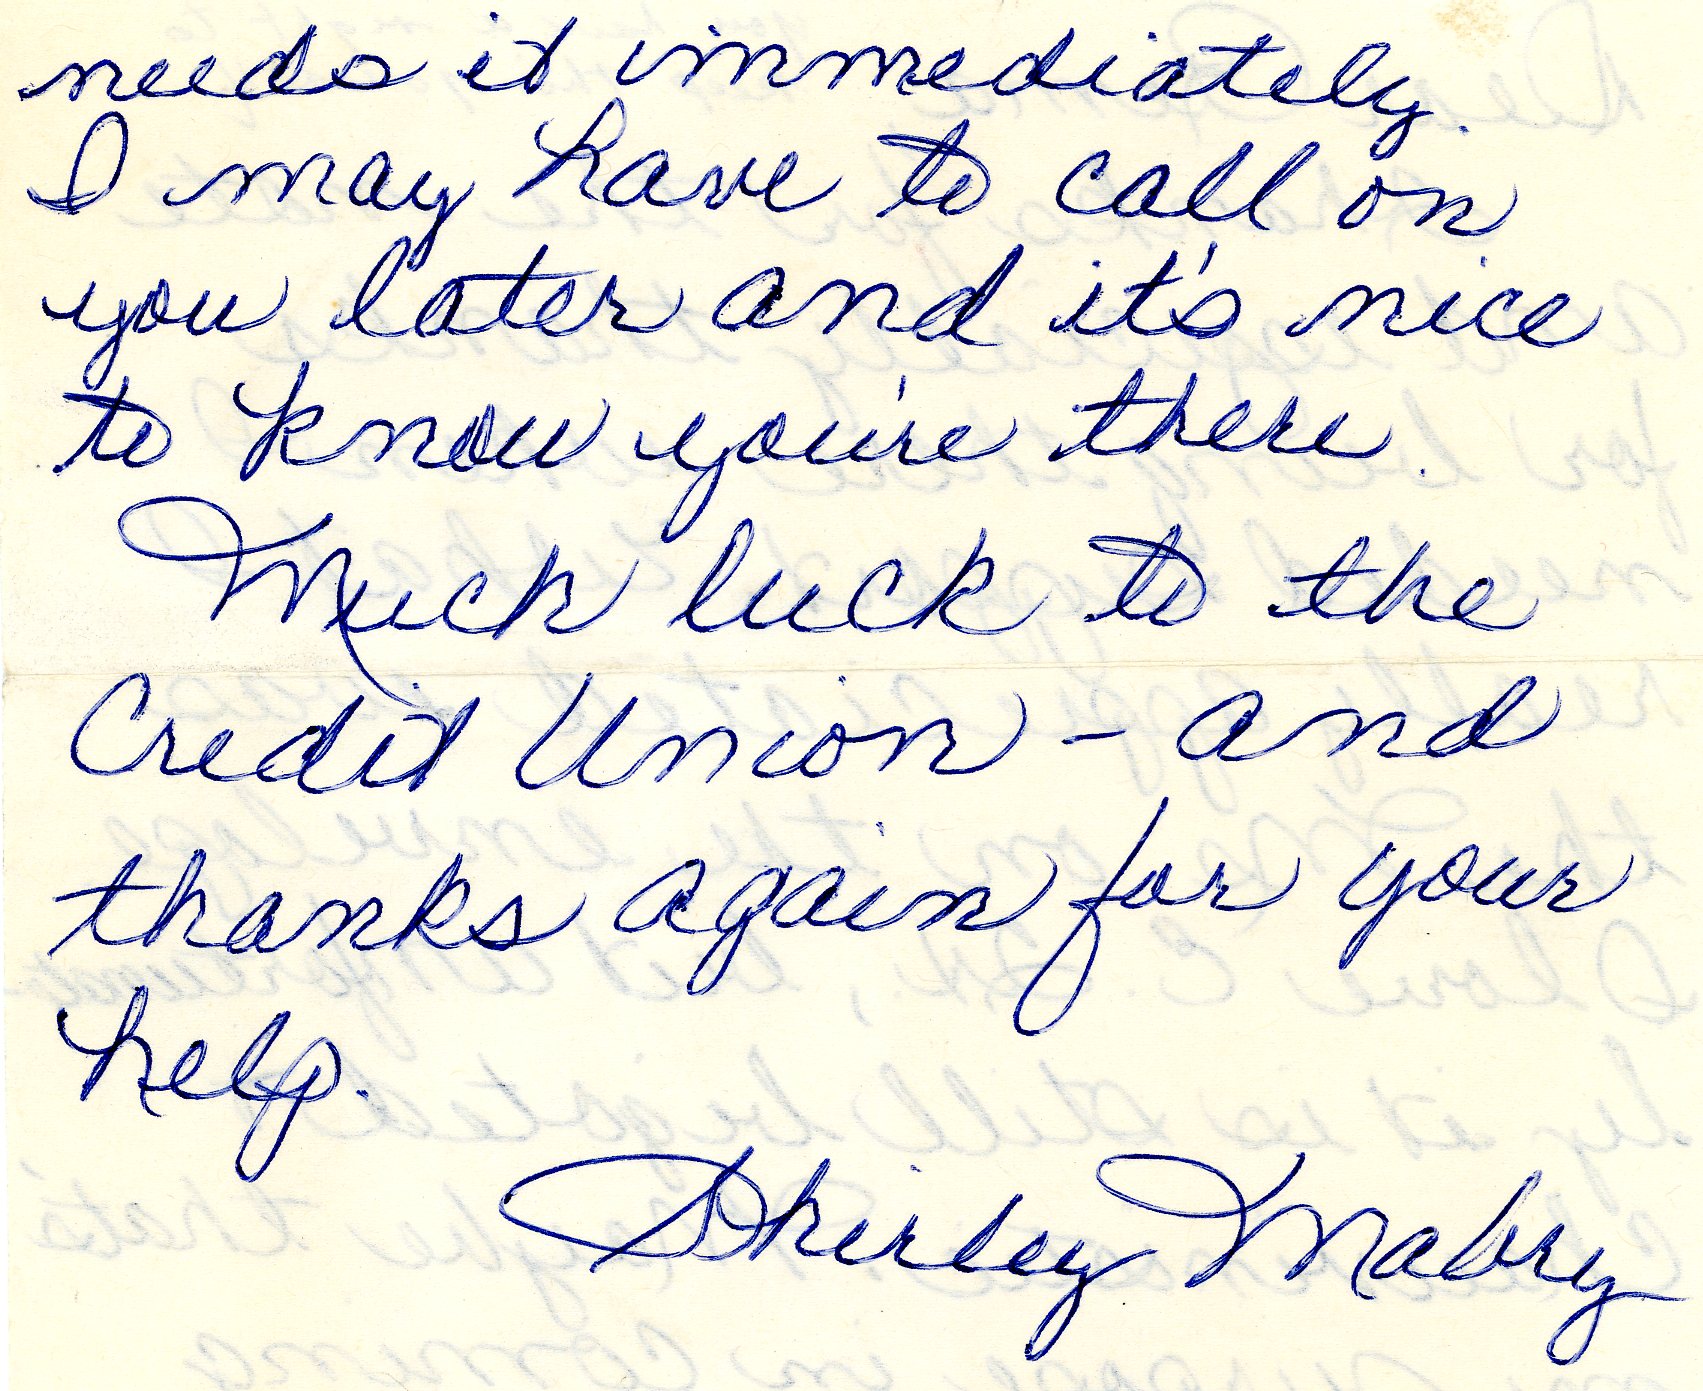 needs it immediately.
I may have to call on
you later and it's nice
to know you're there.
Much luck to the
Credit Union – and
thanks again for your
help.
Shirley Mabry